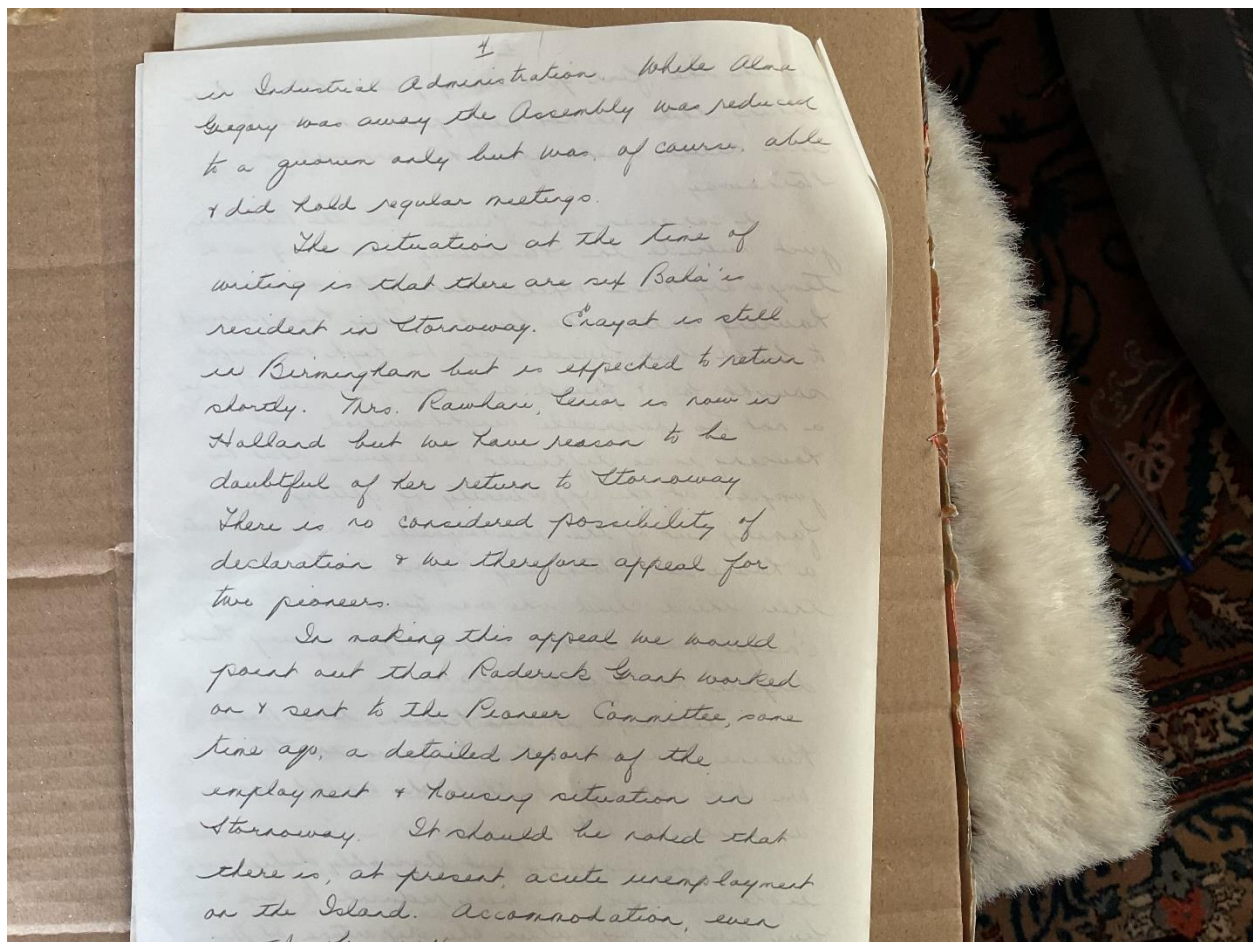 4
in Industrial Administration. While Alma
Gregory was away the Assembly was reduced
to a quorun only but was, of course, able
& did hold regular meetings.
The situation at the time of
writing is that there are six Bahá'is
resident in Stornoway. Enayat is still
in Birmingham but is expected to return
shortly. Mrs. Rawhani, Senior is now in
Holland but we have reason to be
doubtful of her return to Stornoway
There is no considered possibility of
declaration & we therefore appeal for
two pioneers.
In making this appeal we would
point out that Roderick Grant worked
on & sent to the Pioneer Committee, some
time ago, a detailed report of the
employment & housing situation in
Stornoway. It should be noted that
there is, at present, acute unemployment
on the Island. Accommodation, even